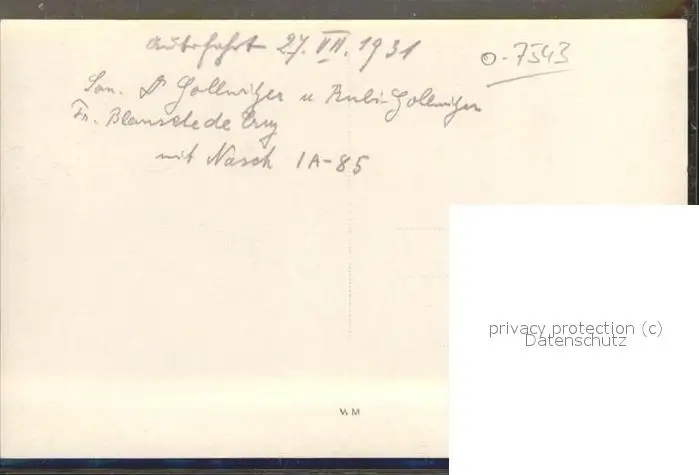 Autofahrt 27. VII. 1931
O.-7543
San. Dr Gollwitzer u Rubi-Gollwitzer
Fr. Blanschede
mit Nasch IA-85
privacy protection (c)
Datenschutz
W M